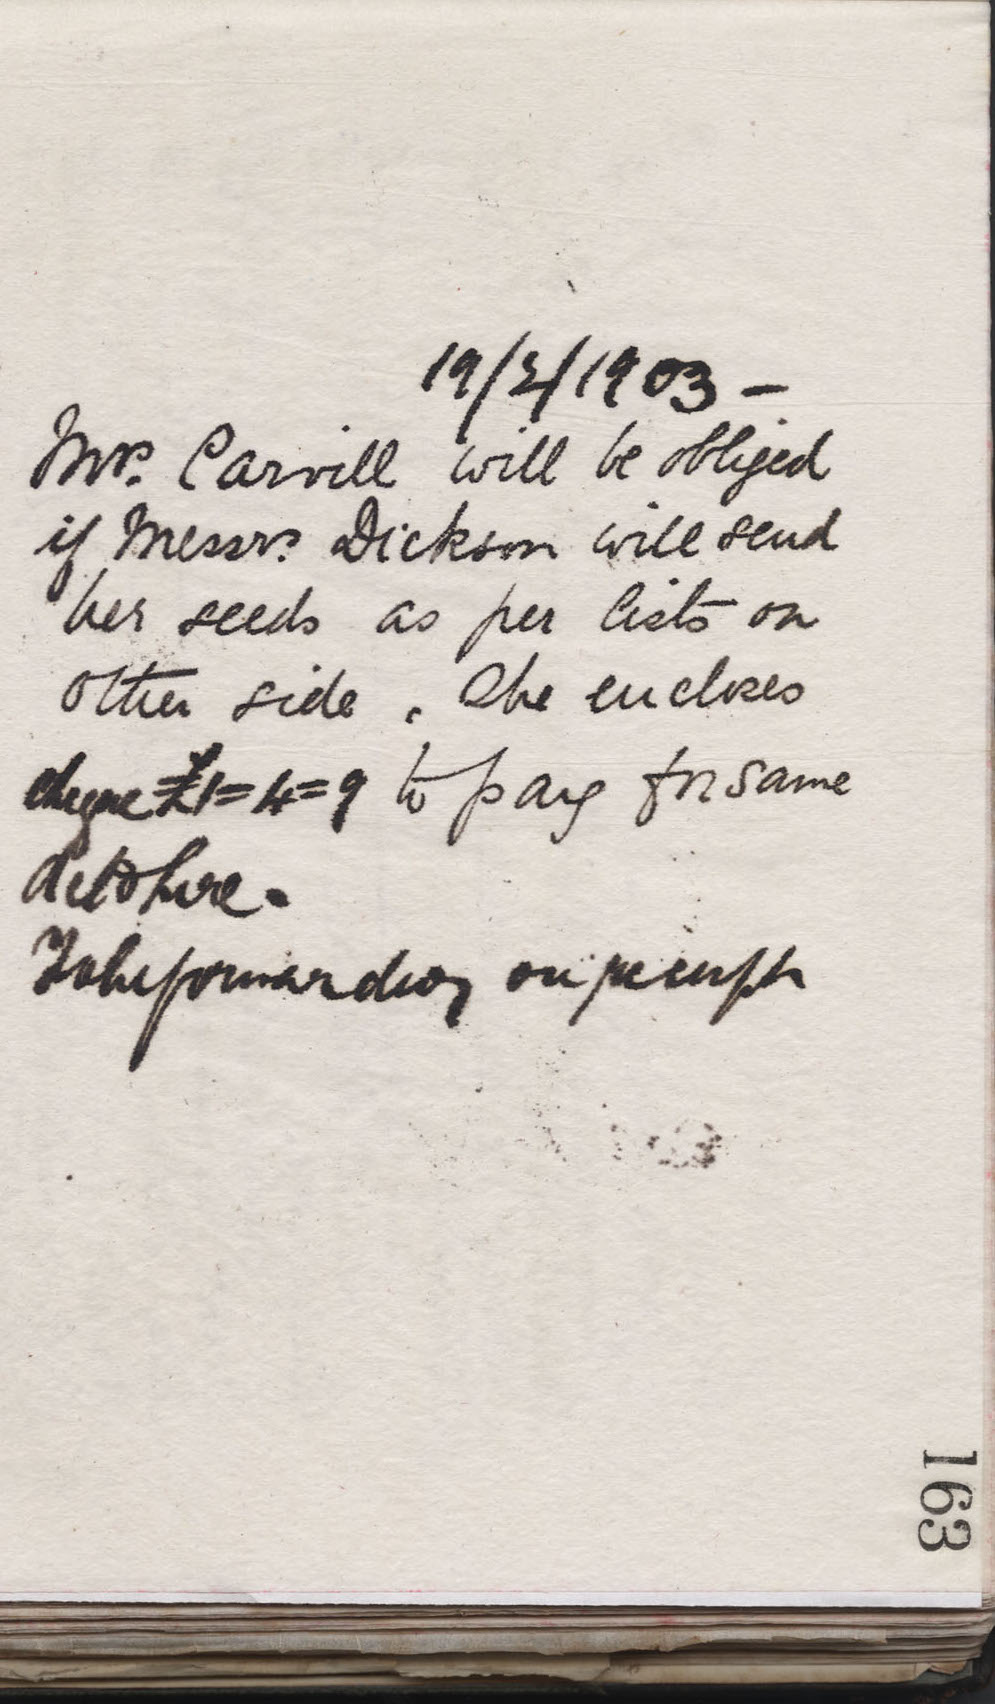 19/2/1903 –
Mrs. Carvill will be obliged
if Messrs. Dickson will send
her seeds as per lists on
other side. She encloses
cheque £1=4=9 to pay for same
To be forwarding on
163